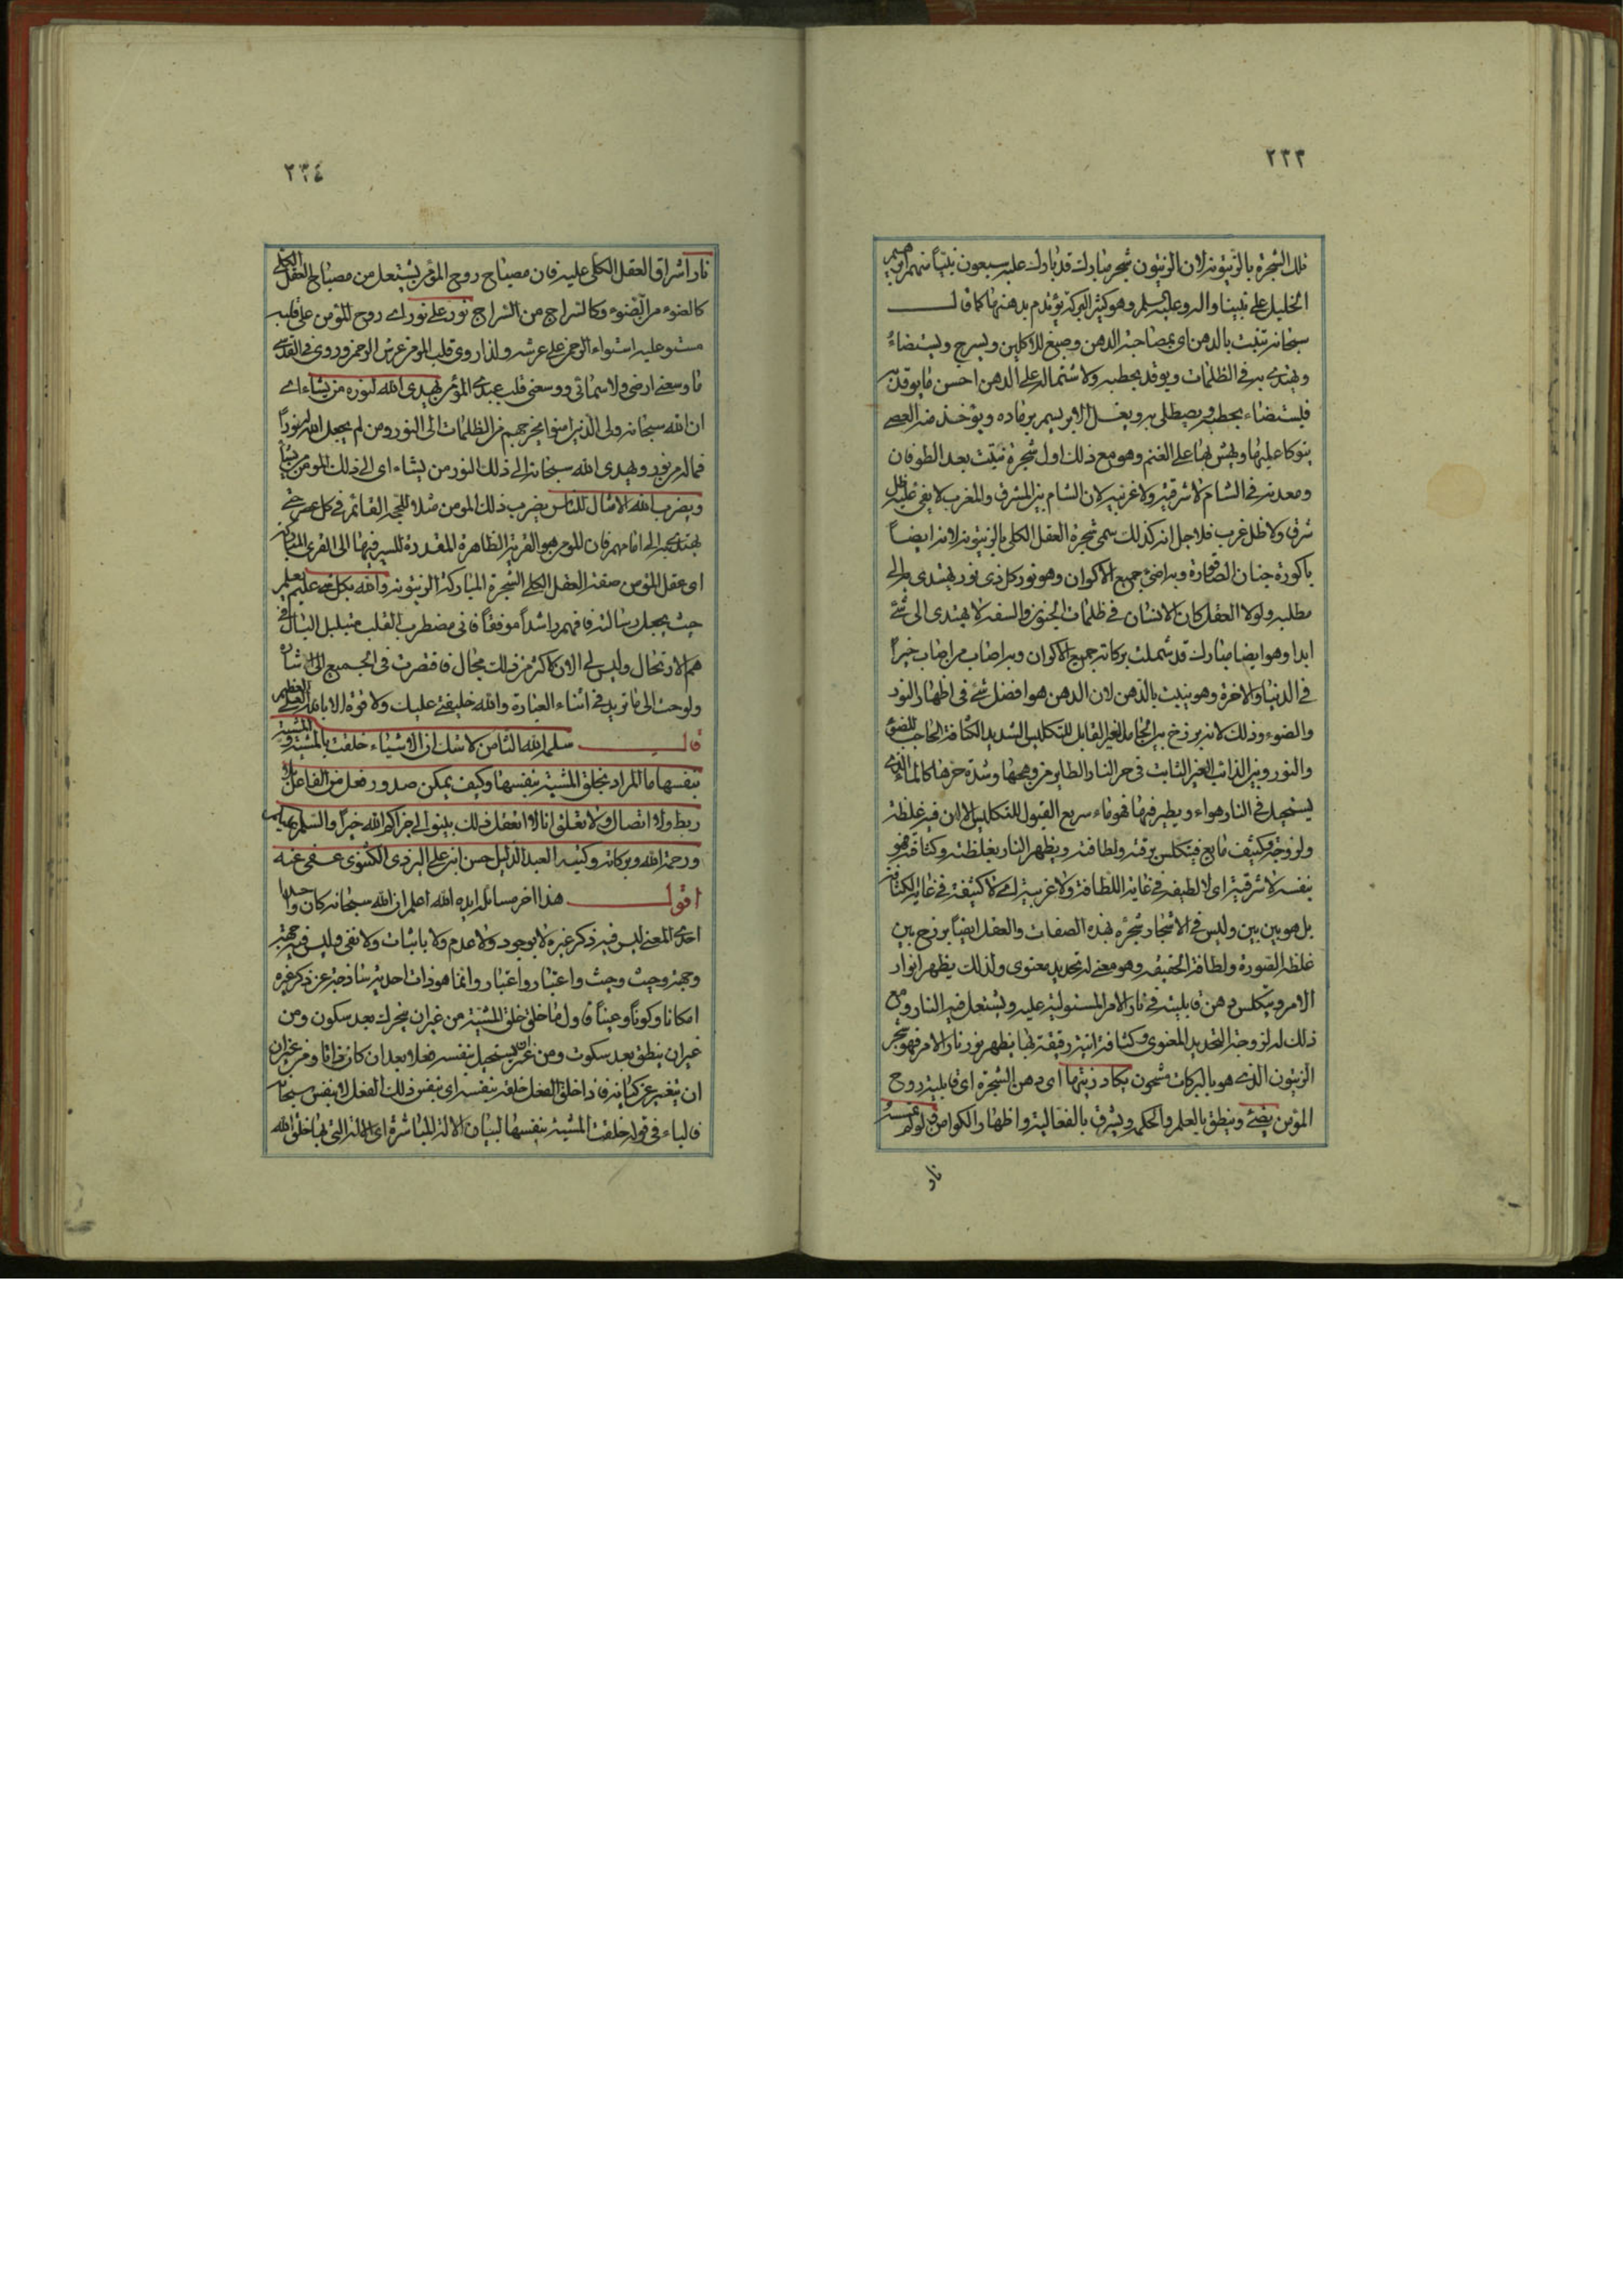 ٢٣٣
تلك الشجرة بالزيتونة لان الزيتون شجر مبارك قد بارك عليه سبعون نبيا منهم ابرهيم
الخليل على نبينا واله وعليه السلم وهو كثير البركة يؤتدم بدهنها كما قال
سبحانه تنبت بالدهن اى بمصاحبة الدهن وصبغ للاكلين ويسرج ويستضاء
ويهتدى به فى الظلمات ويوقد بحطبه ولاشتماله على الدهن احسن ما يوقد به
فيستضاء بحطبه ويصطلى به ويغسل الابريسم برماده ويؤخذ منه العصى
يتوكا عليها ويهش بها على الغنم وهو مع ذلك اول شجرة نبتت بعد الطوفان
ومعدنه فى الشام لا شرقية ولا غربية لان الشام بين المشرق والمغرب لا يفئ عليه ظل
شرق ولا ظل غرب فلاجل انه كذلك سمى شجرة العقل الكلى بالزيتونة لانه ايضاً
باكورة جنان الصاقورة وبه اضئ جميع الاكوان وهو نور كل ذى نور يهتدى به الى
مطلبه ولولا العقل كان الانسان فى ظلمات الجنون والسفه لا يهتدى الى شئ
ابدا وهو ايضا مبارك قد شملت بركاته جميع الاكوان وبه اصاب من اصاب خيراً
فى الدنيا والاخرة وهو ينبت بالدهن لان الدهن هو افضل شئ فى اظهار النور
والضوء وذلك لانه برزخ بين الجامد الغير القابل للتكليس الشديد الكثافة الحاجب للضوء
والنور وبين الذائب الغير الثابت فى حر النار الطاير من وهجها وشدة حرها كالماء الذى
يستحيل فى النار هواء ويطير فيها فهو ماء سريع القبول للتكليس الا ان فيه غلظة
ولزوجة وكثيف مايع فيتكلس برقته ولطافته ويظهر النار بغلظته وكثافته فهو
بنفسه لا شرقية اى لا لطيفة فى غاية اللطافة ولا غربية اى لا كثيفة فى غاية الكثافة
بل هو بين بين وليس فى الاشجار شجرة بهذه الصفات والعقل ايضاً برزخ بين
غلظة الصورة ولطافة الحقيقة وهو معنى له تحديد معنوى ولذلك يظهر انوار
الامر ويتكلس دهن قابليته فى نار الامر المستولية عليه ويشتعل فيه النار ومع
ذلك له لزوجة التحديد المعنوى وكثافة انية رقيقة بها يظهر نور نار الامر فهو شجر
الزيتون الذى هو بالبركات مشحون يكاد زيتها اى دهن الشجرة اى قابلية روح
المؤمن يضئ وينطق بالعلم والحكم ويشرق بالفعالية واظهار الكوامن ولو لم تمسسه
نار
٢٣٤
نار اشراق العقل الكلى عليه فان مصباح روح المؤمن يشتعل من مصباح العقل الكلى
كالضوء من الضوء وكالسراج من السراج نور على نور اى روح المؤمن على قلبه
مستو عليه استواء الرحمن على عرشه ولذا روى قلب المؤمن عرش الرحمن وروى فى القدسى
ما وسعنى ارضى ولا سمائى ووسعنى قلب عبدى المؤمن يهدى الله لنوره من يشاء اى
ان الله سبحانه ولى الذين امنوا يخرجهم من الظلمات الى النور ومن لم يجعل الله له نوراً
فماله من نور ويهدى الله سبحانه الى ذلك النور من يشاء اى الى ذلك المومن من يشأ
ويضرب الله الامثال للناس يضرب ذلك المومن مثلا للحجة القائم فى كل عصر حتى
يهتدى به الى امامهم فان المؤمن هو القرية الظاهرة المقدرة للسير فيها الى القرى المباركة
اى عقل المؤمن صفة العقل الكلى الشجرة المباركة الزيتونة والله بكل شئ عليم يعلم
حيث يجعل رسالته فافهم راشداً موفقاً فانى مضطرب القلب متبلبل البال فى
هم الارتحال وليس لى الان اكثر من ذلك مجال فاقتصرت فى الجميع الى اشارة
ولوحت الى ما تريد فى اثناء العبارة والله خليفتى عليك ولا قوة الا بالله العلى العظيم
قال سلمه الله الثامن لا شك ان الاشياء خلقت بالمشية والمشية
بنفسها ما المراد بخلق المشية بنفسها وكيف يمكن صدور فعل من الفاعل بلا
ربط ولا اتصال ولا تعلق انا لا نعقل ذلك بينوا لى جزاكم الله خيراً والسلم عليكم
ورحمة الله وبركاته وكتبه العبد الذليل حسن ابن على اليزدى الكثنوى عفى عنه
اقول هذا اخر مسائله ايده الله اعلم ان الله سبحانه كان واحدا
احدى المعنى ليس فيه ذكر غيره لا بوجود ولا عدم ولا باثبات ولا نفى وليس فيه جهة
وجهة وحيث وحيث واعتبار واعتبار وانما هو ذات احدية ساذجة عن ذكر غيره
امكانا وكوناً وعيناً فاول ما خلق خلق المشية من غير ان يتحرك بعد سكون ومن
غير ان ينطق بعد سكوت ومن غير ان يستحيل بنفسه فعلا بعد ان كان ذاتا ومن غير ان
ان يتغير عن كيانه فاذا خلق الفعل خلقه بنفسه اى بنفس ذلك الفعل لا بنفس سبحانه
فالباء فى قوله خلقت المشية بنفسها لبيان الالة المباشرة اى الالة التى بها خلق الله